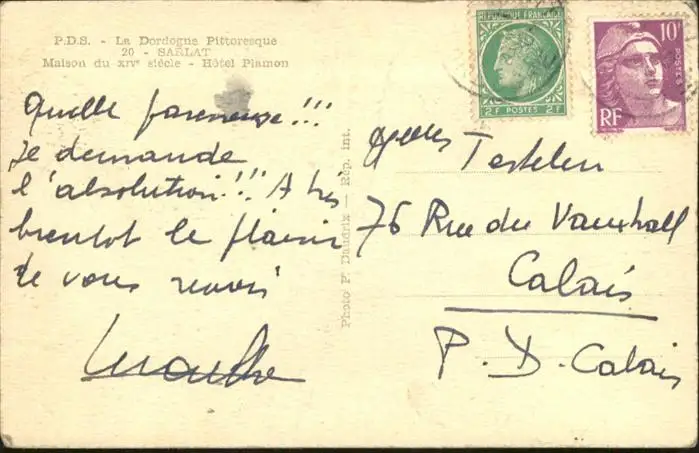 P.D.S. - La Dordogne Pittoresque
20 - SARLAT
Maison du XIVe siècle - Hôtel Plamon
Quelle paresseuse !!!
Je demande
l'absolution !!! A très
bientot le plaisir
de vous revoir
RÉPUBLIQUE FRANÇAISE
2F POSTES 2F
10F
POSTES
RF
Photo P. Daudrix - Rép. int.
Testelin
76 Rue du Vauxhall
Calais
P. D. Calais